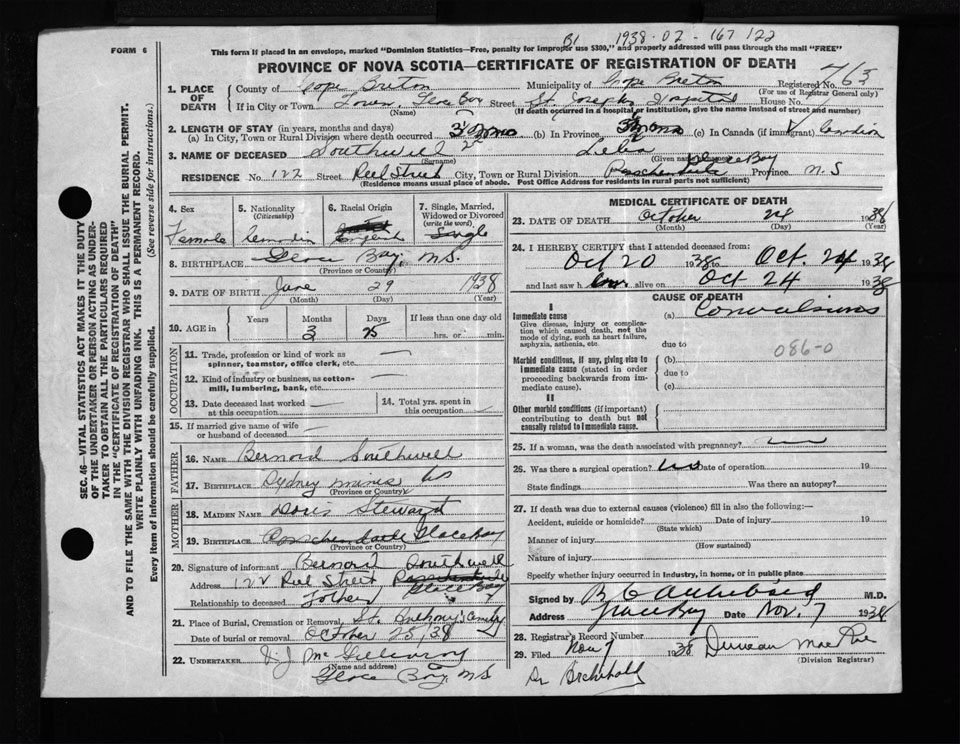 B1 1938-02-167122
FORM 6
This form if placed in an envelope, marked "Dominion Statistics—Free, penalty for improper use $300," and properly addressed will pass through the mail "FREE"
PROVINCE OF NOVA SCOTIA—CERTIFICATE OF REGISTRATION OF DEATH
Registered No. 763
(For use of Registrar General only)
1. PLACE OF DEATH
County of Cape Breton Municipality of Cape Breton
If in City or Town Town, Glace Bay Street St. Joseph's House No.
(Name) (If death occurred in a hospital or institution, give its name instead of street and number)
2. LENGTH OF STAY (in years, months and days)
(a) In City, Town or Rural Division where death occurred (b) In Province (c) In Canada (if immigrant) Canadian
3. NAME OF DECEASED Southwell
(Surname) (Given names)
RESIDENCE No. 122 Street Reel Street City, Town or Rural Division Passchendaele Glace Bay Province N.S
(Residence means usual place of abode. Post Office Address for residents in rural parts not sufficient)
4. Sex
Female
5. Nationality
(Citizenship)
Canadian
6. Racial Origin
English
7. Single, Married, Widowed or Divorced
(write the word)
Single
8. BIRTHPLACE Glace Bay, N.S.
(Province or Country)
9. DATE OF BIRTH June 29 1938
(Month) (Day) (Year)
10. AGE in
Years Months Days If less than one day old
3 25 hrs. or min.
OCCUPATION
11. Trade, profession or kind of work as spinner, teamster, office clerk, etc.
12. Kind of industry or business, as cotton-mill, lumbering, bank, etc.
13. Date deceased last worked at this occupation
14. Total yrs. spent in this occupation
15. If married give name of wife or husband of deceased
FATHER
16. NAME Bernard Southwell
17. BIRTHPLACE Sydney Mines NS
(Province or Country)
MOTHER
18. MAIDEN NAME Doris Stewart
19. BIRTHPLACE Passchendaele Glace Bay
(Province or Country)
20. Signature of informant Bernard Southwell
Address 122 Reel Street Passchendaele Glace Bay
Relationship to deceased Father
21. Place of Burial, Cremation or Removal St. Anthony's Cemetery
Date of burial or removal October 25, 38
22. UNDERTAKER V.J McGillivray
(Name and address)
Glace Bay, N.S
MEDICAL CERTIFICATE OF DEATH
23. DATE OF DEATH October 24 1938
(Month) (Day) (Year)
24. I HEREBY CERTIFY that I attended deceased from:
Oct 20 1938 to Oct. 24 1938
and last saw her alive on Oct 24 1938
CAUSE OF DEATH
I
Immediate cause
Give disease, injury or complication which caused death, not the mode of dying, such as heart failure, asphyxia, asthenia, etc.
(a) Convulsions
due to
086-0
Morbid conditions, if any, giving rise to immediate cause (stated in order proceeding backwards from immediate cause).
(b)
due to
(c)
II
Other morbid conditions (if important) contributing to death but not causally related to immediate cause.
25. If a woman, was the death associated with pregnancy?
26. Was there a surgical operation? Date of operation 19
State findings Was there an autopsy?
27. If death was due to external causes (violence) fill in also the following:—
Accident, suicide or homicide? Date of injury 19
(State which)
Manner of injury
(How sustained)
Nature of injury
Specify whether injury occurred in industry, in home, or in public place
Signed by B C Archibald M.D.
Address Glace Bay Date Nov. 7 1938
28. Registrar's Record Number
29. Filed Nov 9 1938 Duncan MacRae
(Division Registrar)
Dr Archibald
SEC. 46—VITAL STATISTICS ACT MAKES IT THE DUTY
OF THE UNDERTAKER OR PERSON ACTING AS UNDER-
TAKER TO OBTAIN ALL THE PARTICULARS REQUIRED
IN THE "CERTIFICATE OF REGISTRATION OF DEATH"
AND TO FILE THE SAME WITH THE DIVISION REGISTRAR WHO SHALL ISSUE THE BURIAL PERMIT.
WRITE PLAINLY WITH UNFADING INK. THIS IS A PERMANENT RECORD.
Every item of information should be carefully supplied. (See reverse side for instructions.)